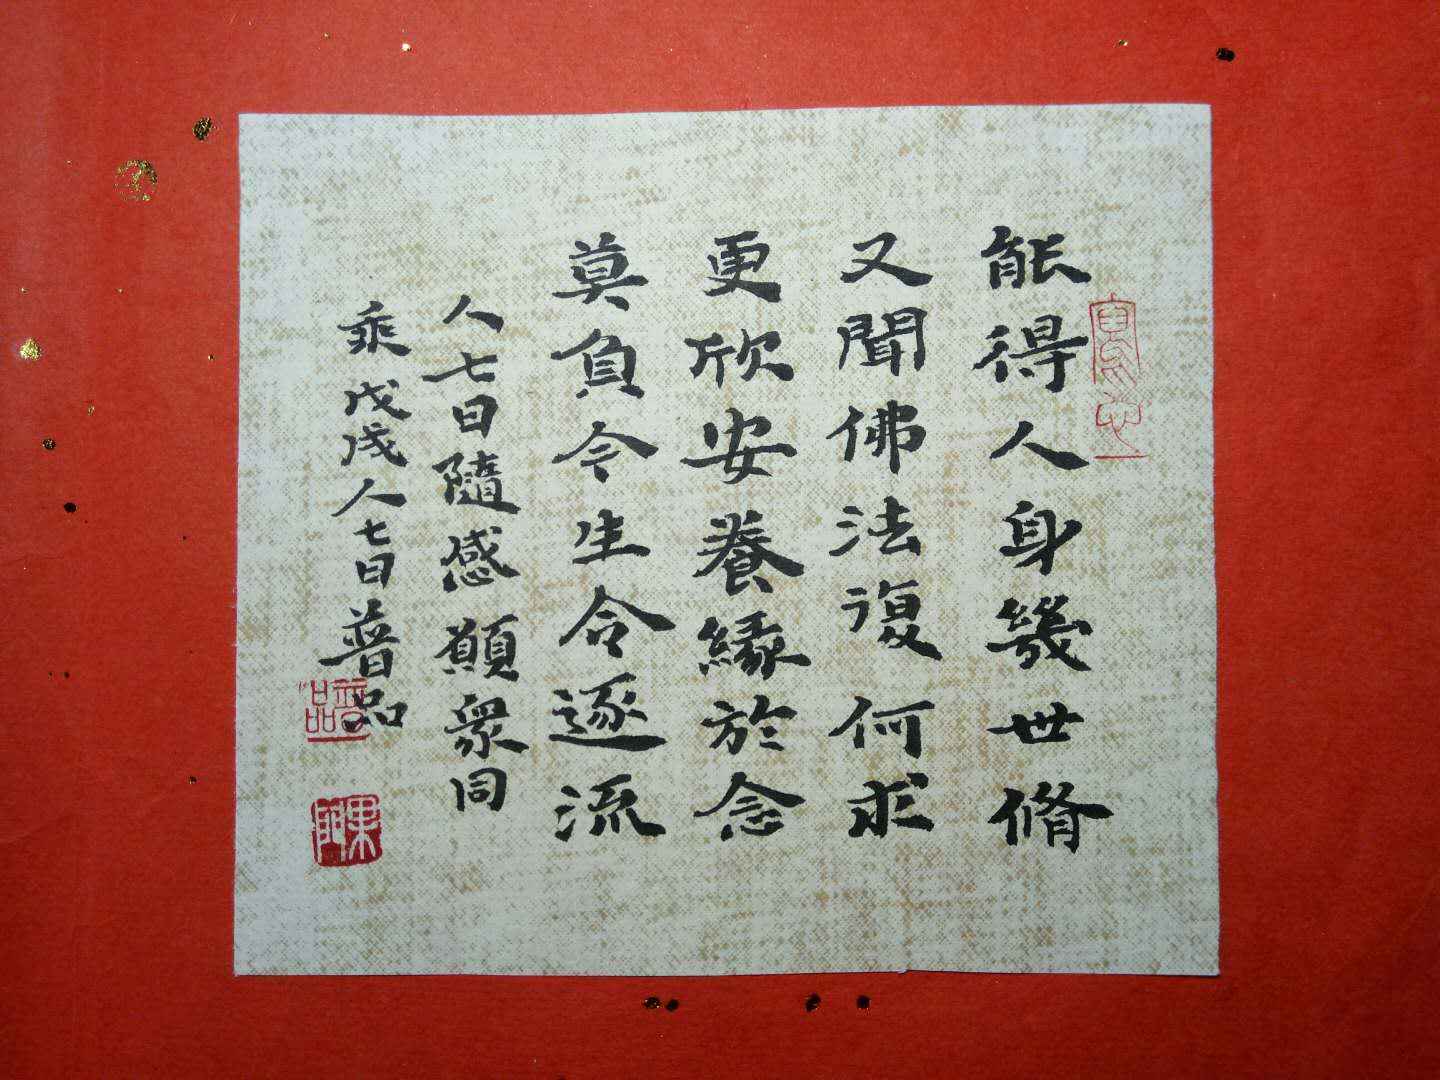 能得人身幾世脩
又聞佛法復何求
更欣安養緣於念
莫負今生令逐流
人七日隨感願衆同
乘 戊戌人七日普品
普品